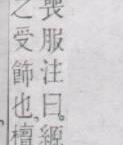 喪服注曰。絰
之受飾也，檀